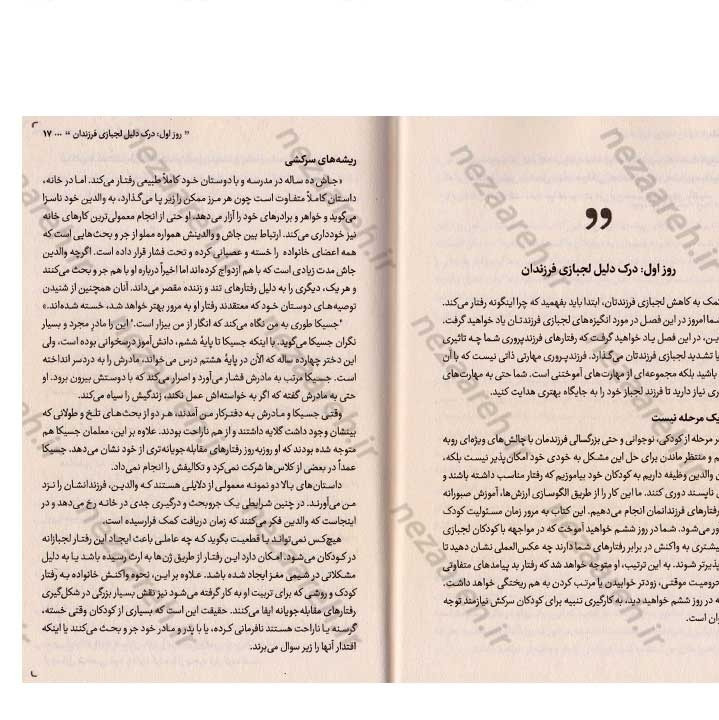 روز اول: درک دلیل لجبازی فرزندان
کمک به کاهش لجبازی فرزندتان، ابتدا باید بفهمید که چرا اینگونه رفتار می‌کند.
شما امروز در این فصل در مورد انگیزه‌های لجبازی فرزندتان یاد خواهید گرفت.
این، در این فصل یاد خواهید گرفت که رفتارهای فرزندپروری شما چه تاثیری
یا تشدید لجبازی فرزندتان می‌گذارد. فرزندپروری مهارتی ذاتی نیست که با آن
باشید بلکه مجموعه‌ای از مهارت‌های آموختنی است. شما حتی به مهارت‌های
ری نیاز دارید تا فرزند لجباز خود را به جایگاه بهتری هدایت کنید.
یک مرحله نیست
مرحله از کودکی، نوجوانی و حتی بزرگسالی فرزندمان با چالش‌های ویژه‌ای روبه
م و منتظر ماندن برای حل این مشکل به خودی خود امکان‌پذیر نیست بلکه،
ن والدین وظیفه داریم به کودکان خود بیاموزیم که رفتار مناسب داشته باشند و
ی ناپسند دوری کنند. ما این کار را از طریق الگوسازی ارزش‌ها، آموزش صبورانه
رفتارهای فرزندانمان انجام می‌دهیم. این کتاب به مرور زمان مسئولیت کودک
ور می‌شود. شما در روز ششم خواهید آموخت که در مواجهه با کودکان لجبازی
بیشتری به واکنش در برابر رفتارهای شما دارند چه عکس‌العملی نشان دهید تا
پذیرتر شوند. به این ترتیب، او متوجه خواهد شد که رفتار بد پیامدهای متفاوتی
حرومیت موقتی، زودتر خوابیدن یا مرتب کردن به هم ریختگی خواهد داشت.
ه در روز ششم خواهید دید، به کارگیری تنبیه برای کودکان سرکش نیازمند توجه
وان است.
” روز اول: درک دلیل لجبازی فرزندان “ ... ۱۷
ریشه‌های سرکشی
«جاش ده ساله در مدرسه و با دوستان خود کاملاً طبیعی رفتار می‌کند. اما در خانه،
داستان کاملاً متفاوت است چون هر مرز ممکن را زیر پا می‌گذارد، به والدین خود ناسزا
می‌گوید و خواهر و برادرهای خود را آزار می‌دهد. او حتی از انجام معمولی‌ترین کارهای خانه
نیز خودداری می‌کند. ارتباط بین جاش و والدینش همواره مملو از جر و بحث‌هایی است که
همه اعضای خانواده را خسته و عصبانی کرده و تحت فشار قرار داده است. اگرچه والدین
جاش مدت زیادی است که با هم ازدواج کرده‌اند اما اخیراً درباره او با هم جر و بحث می‌کنند
و هر یک، دیگری را به دلیل رفتارهای تند و زننده مقصر می‌داند. آنان همچنین از شنیدن
توصیه‌های دوستان خود که معتقدند رفتار او به مرور بهتر خواهد شد، خسته شده‌اند.»
"جسیکا طوری به من نگاه می‌کند که انگار از من بیزار است." این را مادرِ مجرد و بسیار
نگران جسیکا می‌گوید. با اینکه جسیکا تا پایهٔ ششم، دانش‌آموز درسخوانی بوده است، ولی
این دختر چهارده ساله که الآن در پایهٔ هشتم درس می‌خواند، مادرش را به دردسر انداخته
است. جسیکا مرتب به مادرش فشار می‌آورد و اصرار می‌کند که با دوستش بیرون برود. او
حتی به مادرش گفته که اگر به خواسته‌اش عمل نکند، زندگیش را سیاه می‌کند.
وقتی جسیکا و مادرش به دفترکار من آمدند، هر دو از بحث‌های تلخ و طولانی که
بینشان وجود داشت گلایه داشتند و از هم ناراحت بودند. علاوه بر این، معلمان جسیکا هم
متوجه شده بودند که او روزبه‌روز رفتارهای مقابله‌جویانه‌تری از خود نشان می‌دهد. جسیکا
عمداً در بعضی از کلاس‌ها شرکت نمی‌کرد و تکالیفش را انجام نمی‌داد.
داستان‌های بالا دو نمونه معمولی از دلایلی هستند که والدین، فرزندانشان را نزد
من می‌آورند. در چنین شرایطی یک جروبحث و درگیری جدی در خانه رخ می‌دهد و در
اینجاست که والدین فکر می‌کنند که زمان دریافت کمک فرارسیده است.
هیچ‌کس نمی‌تواند با قطعیت بگوید که چه عاملی باعث ایجاد این رفتار لجبازانه
در کودکان می‌شود. امکان دارد این رفتار از طریق ژن‌ها به ارث رسیده باشد یا به دلیل
مشکلاتی در شیمی مغز ایجاد شده باشد. علاوه بر این، نحوه واکنش خانواده به رفتار
کودک و روشی که برای تربیت او به کار گرفته می‌شود نیز نقش بسیار بزرگی در شکل‌گیری
رفتارهای مقابله‌جویانه ایفا می‌کنند. حقیقت این است که بسیاری از کودکان وقتی خسته،
گرسنه یا ناراحت هستند نافرمانی کرده، یا با پدر و مادر خود جر و بحث می‌کنند یا اینکه
اقتدار آنها را زیر سوال می‌برند.
nezaareh.ir
nezaareh.ir
nezaareh.ir
nezaareh.ir